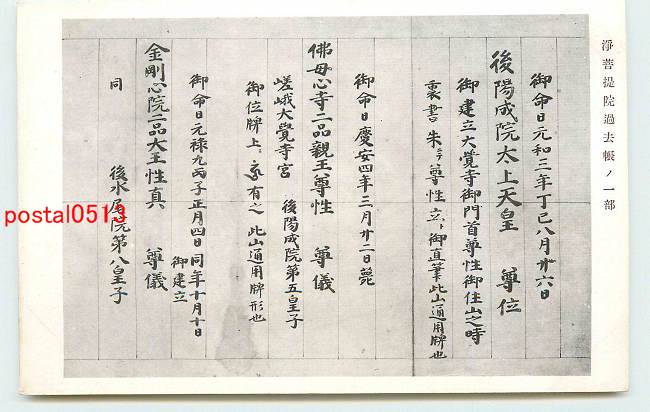 淨菩提院過去帳ノ一部
御命日元和三年丁巳八月廿六日
後陽成院太上天皇 尊位
御建立大覺寺御門首尊性御住山之時
裏書朱ニテ尊性立ト御直筆此山通用牌也
御命日慶安四年三月廿二日薨
佛母心寺二品親王尊性 尊儀
嵯峨大覺寺宮 後陽成院第五皇子
御位牌上ニ有之此山通用牌形也
御命日元祿九丙子正月四日同年十月十日
御建立
金剛心院二品大王性真 尊儀
同 後水尾院第八皇子
postal0519